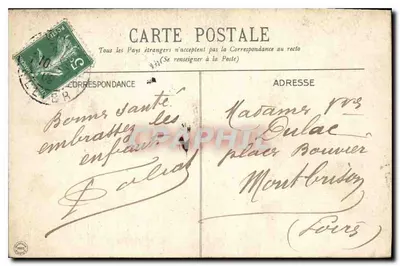 CARTE POSTALE
Tous les Pays étrangers n'acceptent pas la Correspondance au recto
(Se renseigner à la Poste)
CORRESPONDANCE
ADRESSE
Bonne santé
embrassez les
enfants
Madame Vve
Dulac
place Bouvier
Montbrison
(Loire)